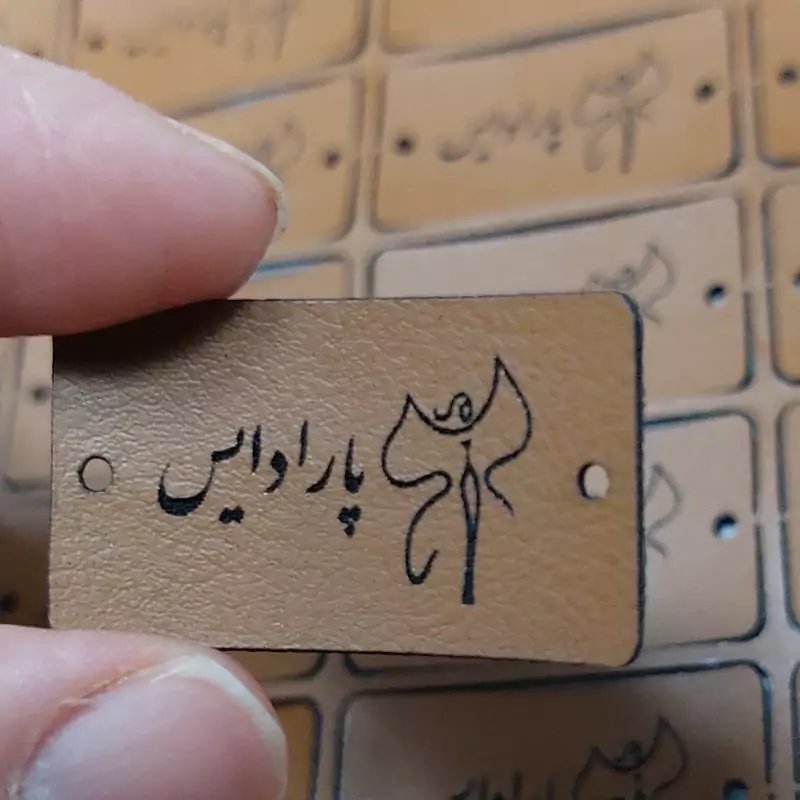 پارادایس